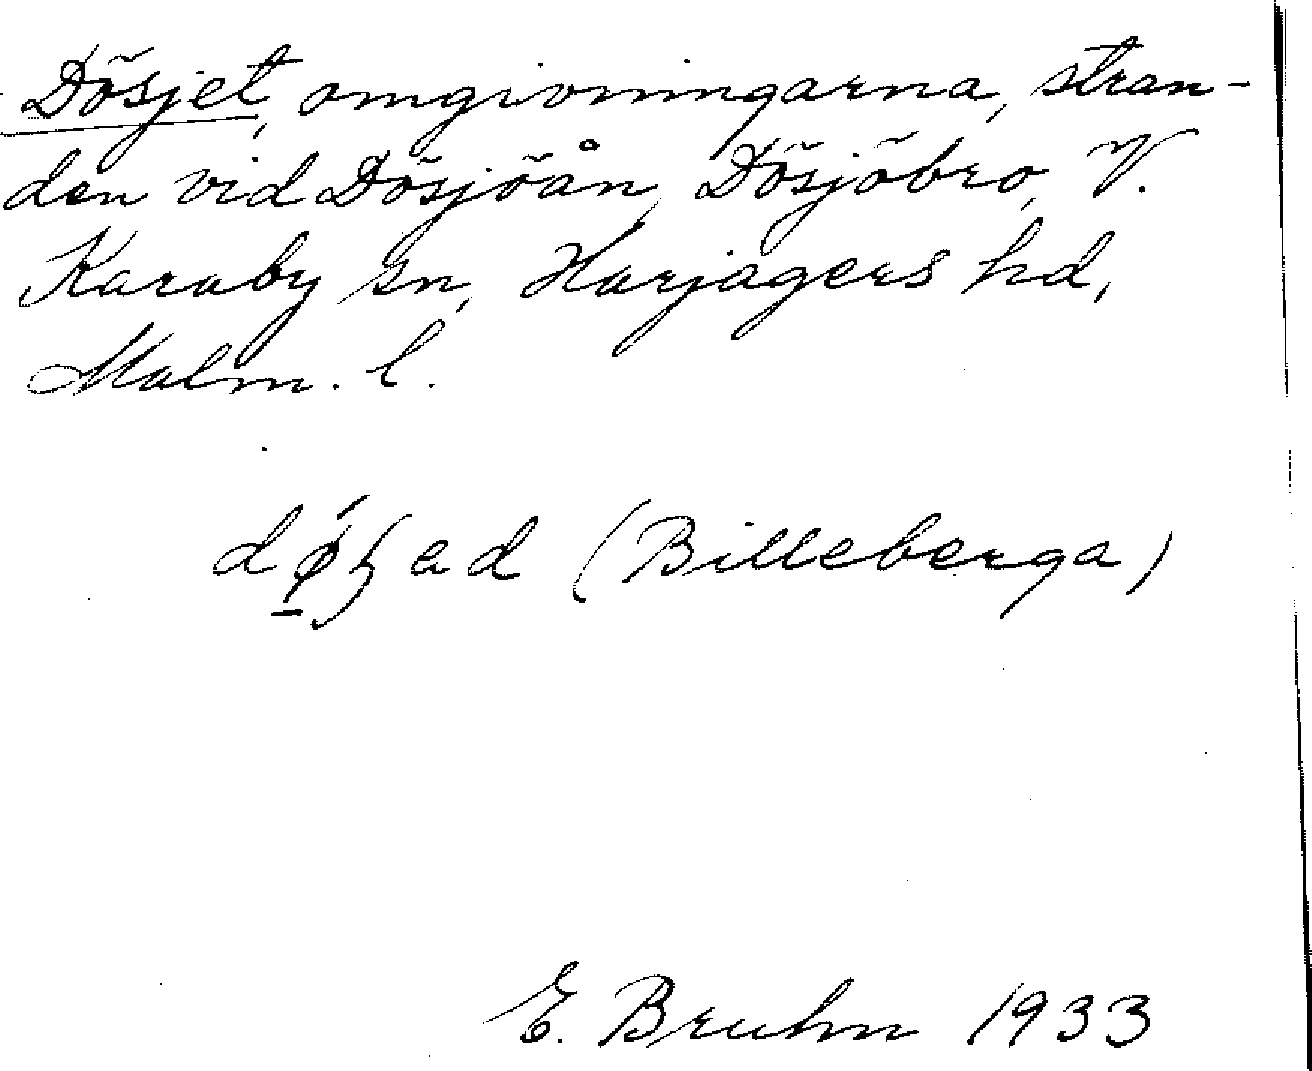 Dösjet, omgivningarna, stran-
den vid Dösjöån, Dösjöbro, V.
Karaby sn, Harjagers hd,
Malm. l.
(Billeberga)
E. Bruhn 1933